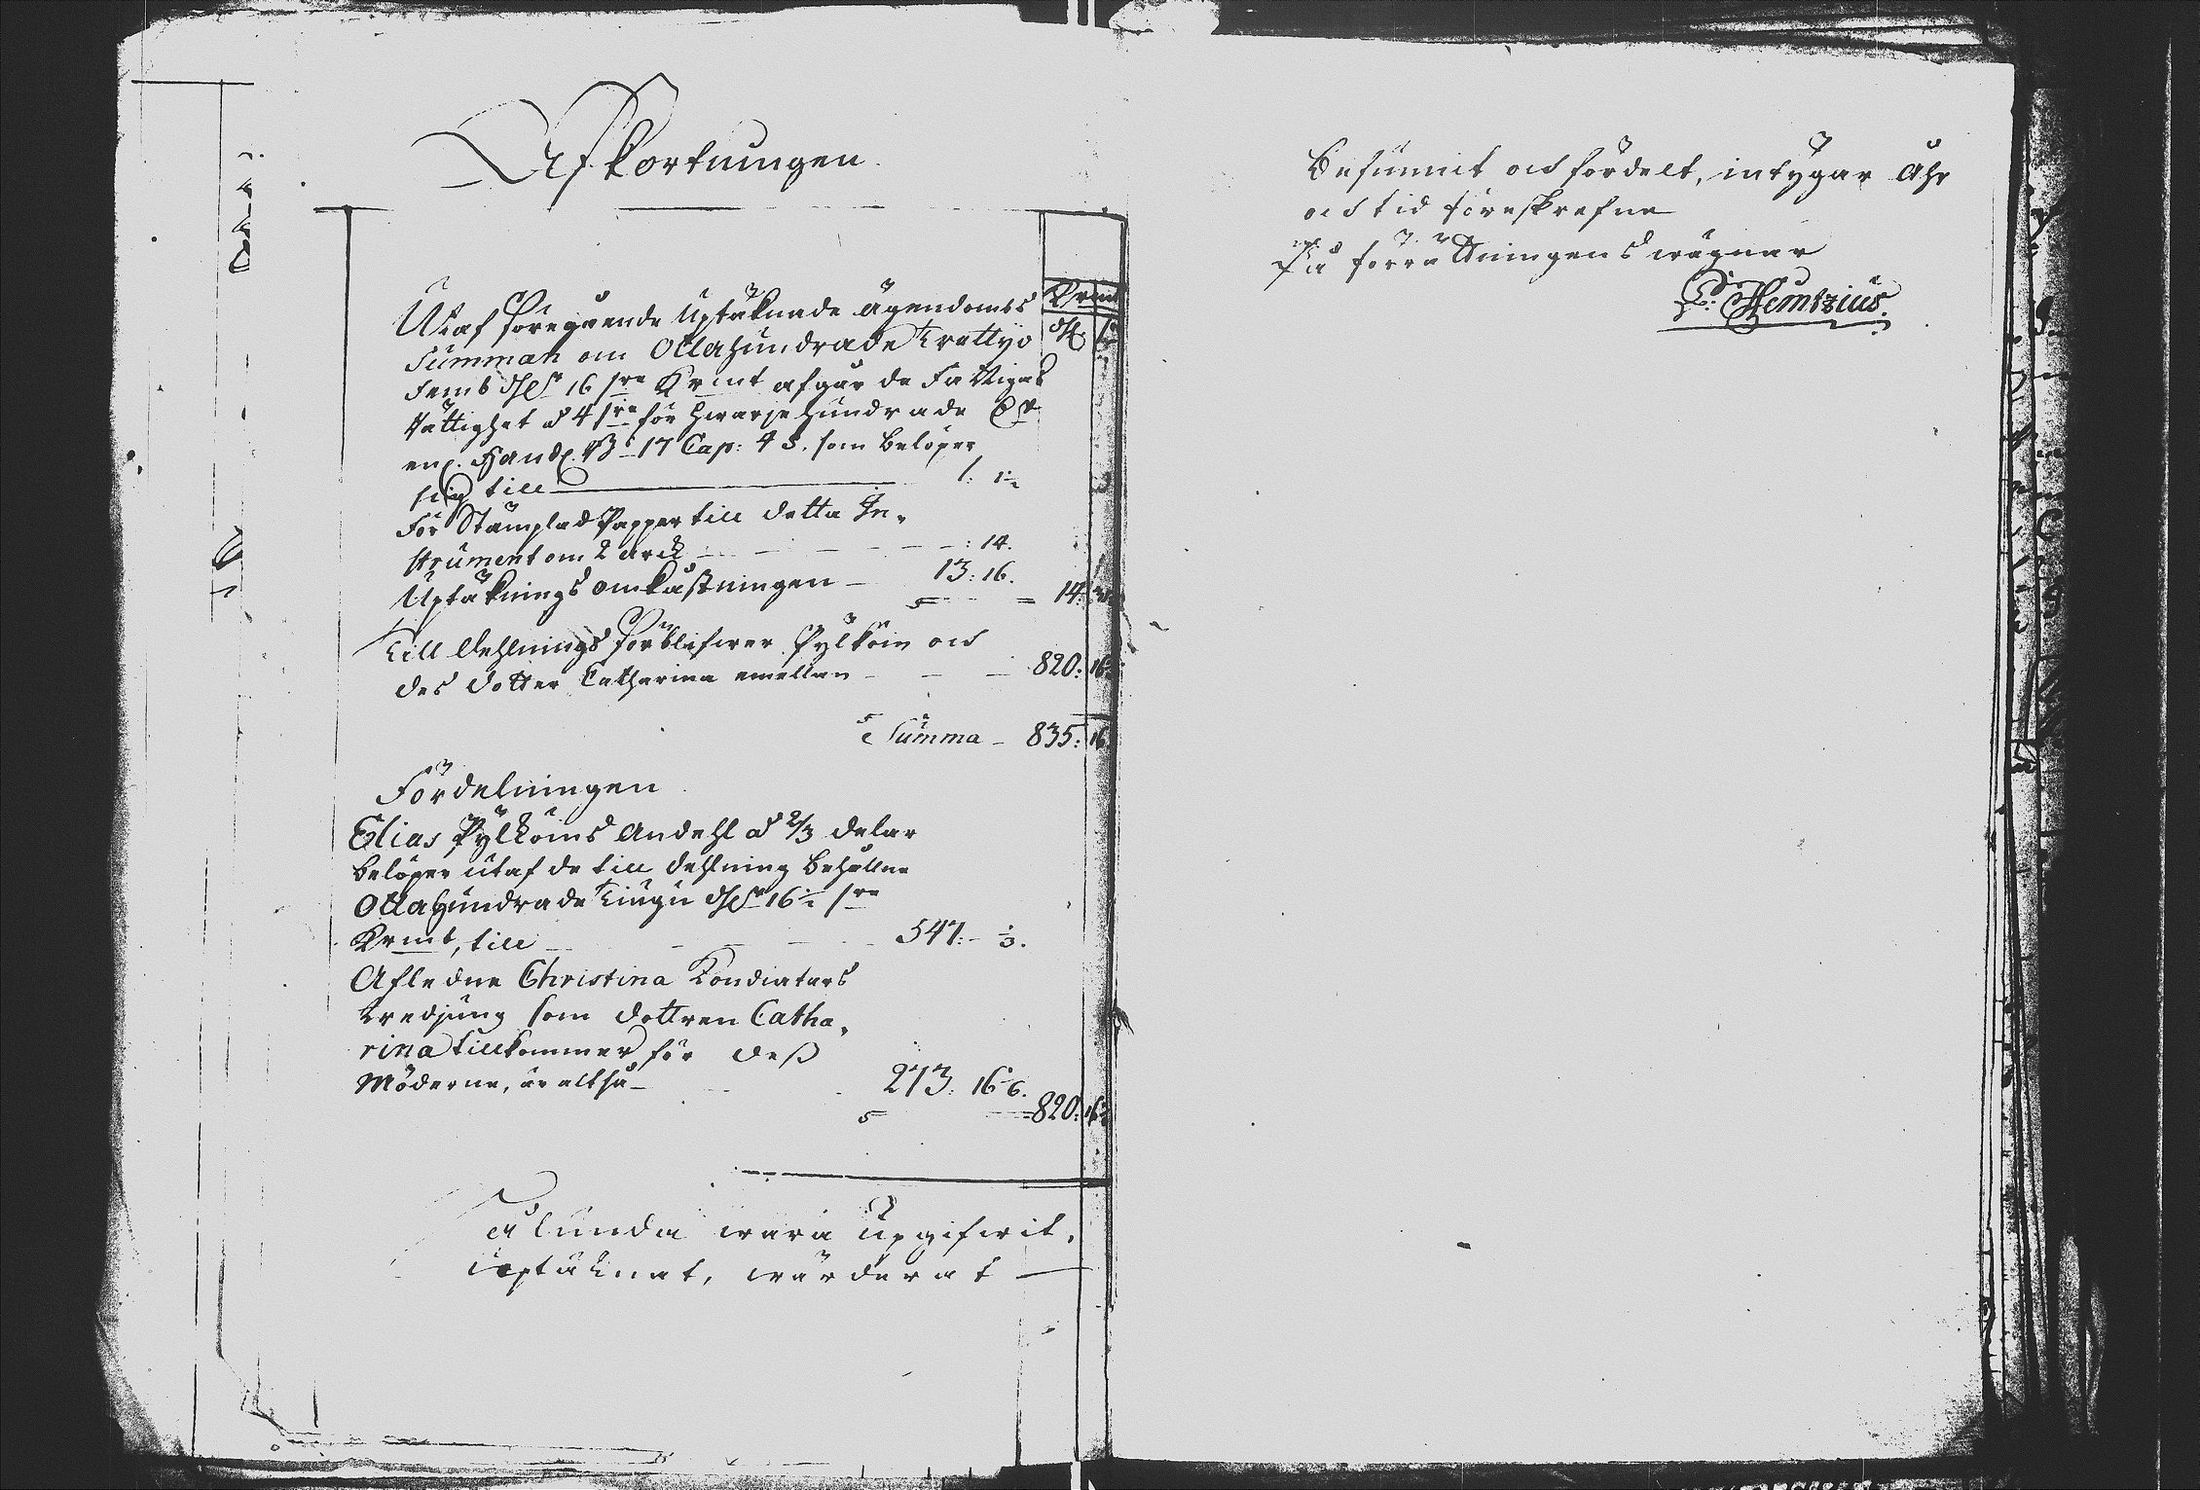 Afkortningen
Krmt
Utaf föregående Uptäknade ägendoms
Summan om Ottahundrade Trettijo
Femb dlr 16 öre Krmt afgår de Fattigas
Rättighet à 4 öre för hwarje hundrade
17 Cap: 4 §. som belöper
sig till 1: 1½
För Stämplad Papper till detta In-
strument om 2 arck — — — : 14.
Uptäknings omkåstningen — 13: 16.
14:
Till dehlnings förblifwer Pylköin och
des dotter Catharina emellan — — — 820: 16
Summa — 835: 16
Fördelningen
Elias Pylköins Andehl à 2/3 delar
belöper utaf de till dehlning behållne
Ottahundrade Tiugu dlr 16½ öre
Krmt, till — — — 547: – ⅓.
Afledne Christina Kondiatars
tredjung som dottren Catha-
rina tillkommer för deß
Möderne, är altså — 273: 16 1/6.
820: 16½
Således wara Upgifwit,
uptäknat, wärderat —
Besummit och fördelt, intygar Åhr
och tid föreskrefne
På förrättningens wägnar
C: Hemtzius.